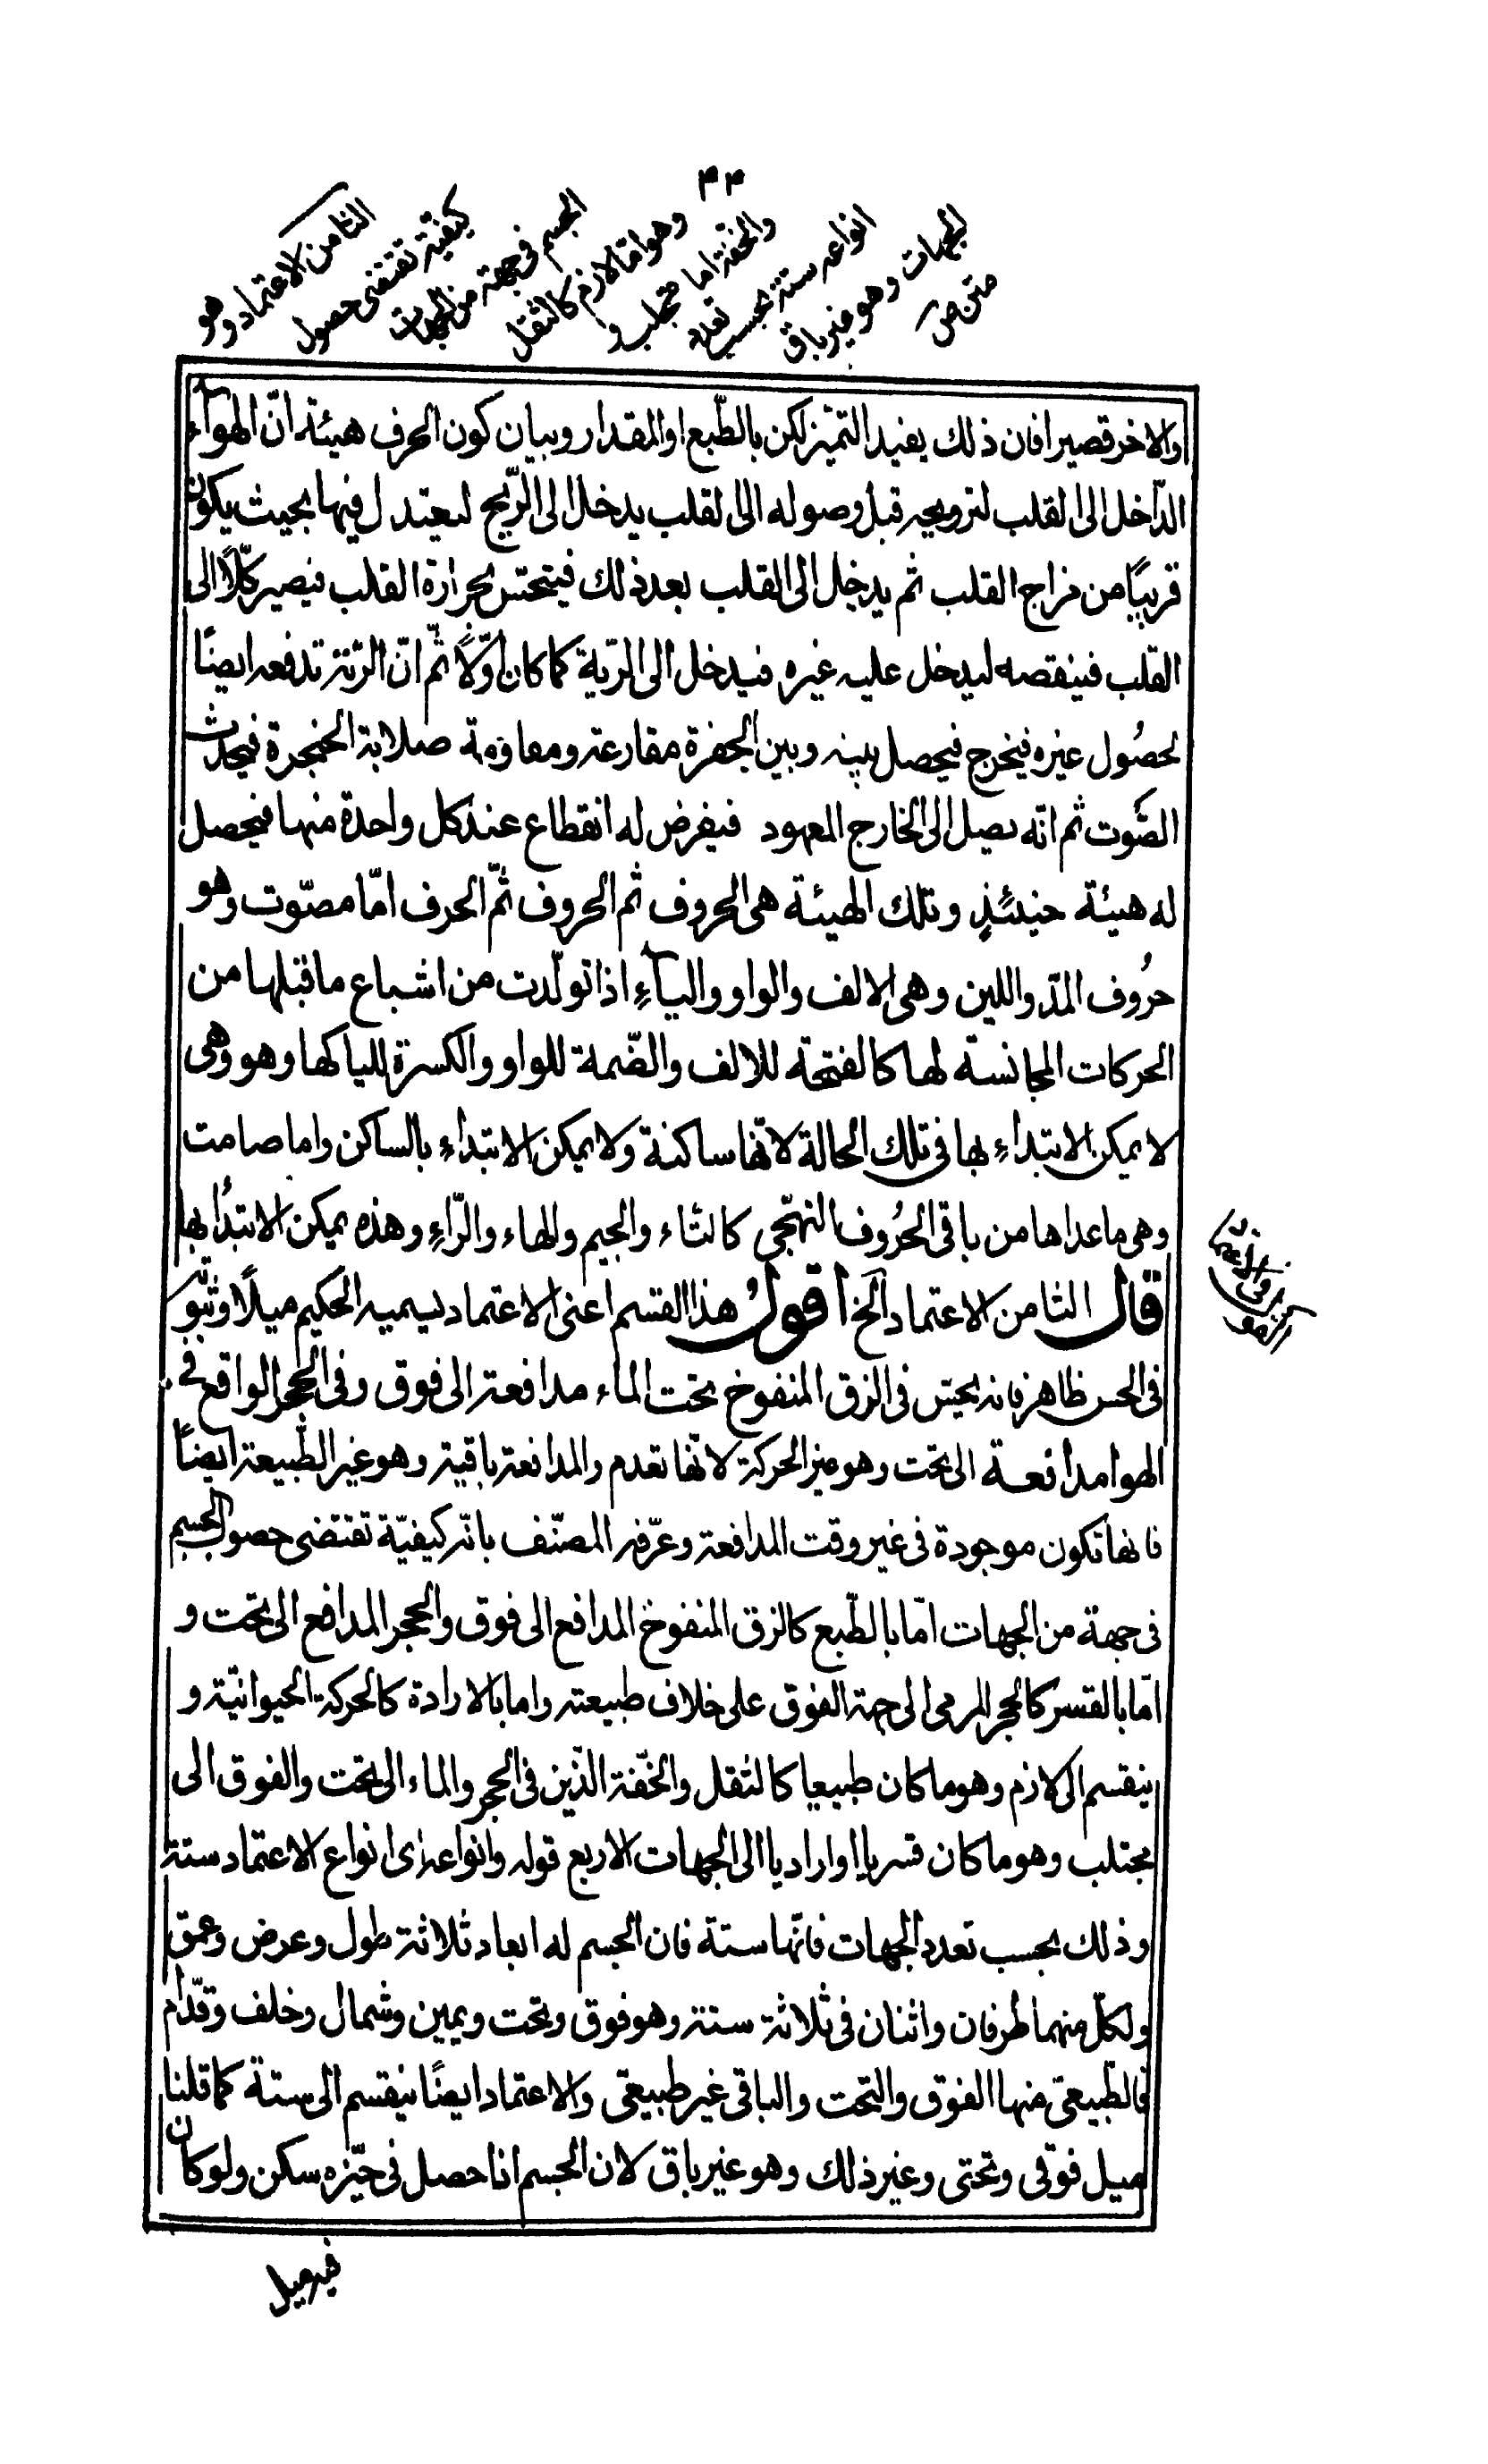 ۴۳
الثامن الاعتماد وهو
كيفية تقتضى حصول
الجسم فى جهة من الجهات
وهو اما لازم كالثقل
والخفة اما مجتلب و
انواعه ستة بحسب تعدد
الجهات وهو غير باق
متن ص
والاخر قصيرا فان ذلك يفيد التميز لكن بالطّبع او المقدار وبيان كون الحرف هيئة انّ الهوآء
الدّاخل الى القلب لترويحه قبل وصوله الى القلب يدخل الى الرّيح ليعتدل فيها بحيث يكون
قريبًا من مزاج القلب ثم يدخل الى القلب بعد ذلك فيتحسّ بحرارة القلب فيصير كلًّا الى
القلب فينقصه ليدخل عليه غيره فيدخل الى الرّية كما كان اوّلًا ثم انّ الرّئة تدفعه ايضًا
لحصُول غيره فيخرج فيحصل بينه وبين الحفرة مقارعة ومقاومة صلابة الحنجرة فيحدث
الصَّوت ثم انّه يصل الى المخارج المعهود فيفرض له انقطاع عند كل واحدة منها فيحصل
له هيئة حينئذٍ وتلك الهيئة هى الحروف ثم الحروف ثمّ الحرف امّا مصّوت وهو
حرُوف المدّ واللين وهى الالف والواو واليآءِ اذا تولّدت من اشباع ما قبلها من
الحركات المجانسة لها كالفتحة للالف والضّمة للواو والكسرة للياء كها وهو وهى
لا يمكن الابتداء بها فى تلك الحالة لانّها ساكنة ولا يمكن الابتداء بالساكن واما صامت
وهى ما عداها من باقى الحُروف التهجّى كالثاء والجيم والهاء والرّاءِ وهذه يمكن الابتدُا بها
قال الثامن الاعتماد آلخ اقولُ هذا القسم اعنى الاعتماد يسميه الحكيم ميلًا وثبوته
فى الحس ظاهر فانه يحسّ فى الزق المنفوخ تحت الماء مدافعة الى فوق وفى الحجر الواقع فى
الهوا مدافعة الى تحت وهو غير الحركة لانّها تعدم والمدافعة باقية وهو غير الطّبيعة ايضًا
فانها تكون موجودة فى غير وقت المدافعة وعرّفه المصنّف بانّه كيفيّة تقتضى حصول الجسم
فى جهة من الجهات امّا بالطّبع كالزق المنفوخ المدافع الى فوق والحجر المدافع الى تحت و
امّا بالقسر كالحجر المرمى الى جهة الفوق على خلاف طبيعته واما بالارادة كالحركة الحيوانيّة و
ينقسم الى لازم وهو ما كان طبيعيا كالثقل والخّفة الذّين فى الحجر والماء الى تحت والفوق الى
مجتلب وهو ما كان قسريا او اراديا الى الجهات الاربع قوله وانواعه اى انواع الاعتماد ستة
وذلك بحسب تعدد الجهات فانّها ستة فان الجسم له ابعاد ثلاثة طول وعرض وعمق
ولكلّ منهما طرفان واثنان فى ثلاثة ستة وهو فوق وتحت ويمين وشمال وخلف وقدّام
فالطّبيعىّ منها الفوق والتحت والباقى غير طبيعىّ والاعتماد ايضًا ينقسم الى ستة كما قلنا
ميل فوقى وتحتى وغير ذلك وهو غير باق لان الجسم اذا حصل فى حيّزه سكن ولو كان
فيه ميل